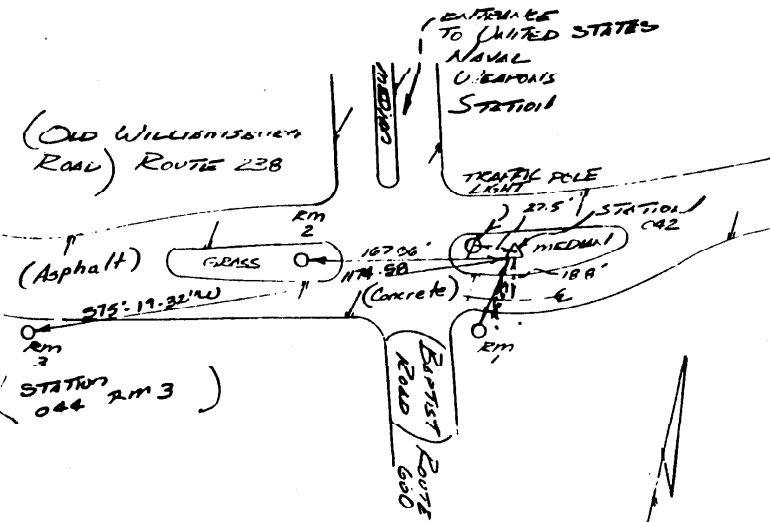 ENTRANCE
TO UNITED STATES
NAVAL
WEAPONS
STATION
MEDIAN
(OLD WILLIAMSBURG
ROAD) ROUTE 238
TRAFFIC POLE
LIGHT
27.5'
STATION
042
RM
2
167.06'
MEDIAN
GRASS
(Asphalt)
1174.98
18.8'
(Concrete)
S75°-19.32'W
RM
3
RM
1
STATION
044 RM 3
(BAPTIST
ROAD) ROUTE
600